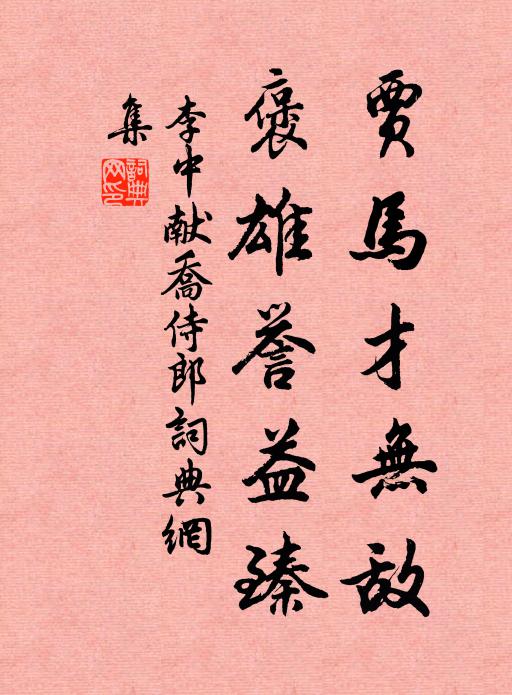 賈馬才無敵
褒雄誉益臻
李中献喬侍郎詞典網
集
詞典
网印